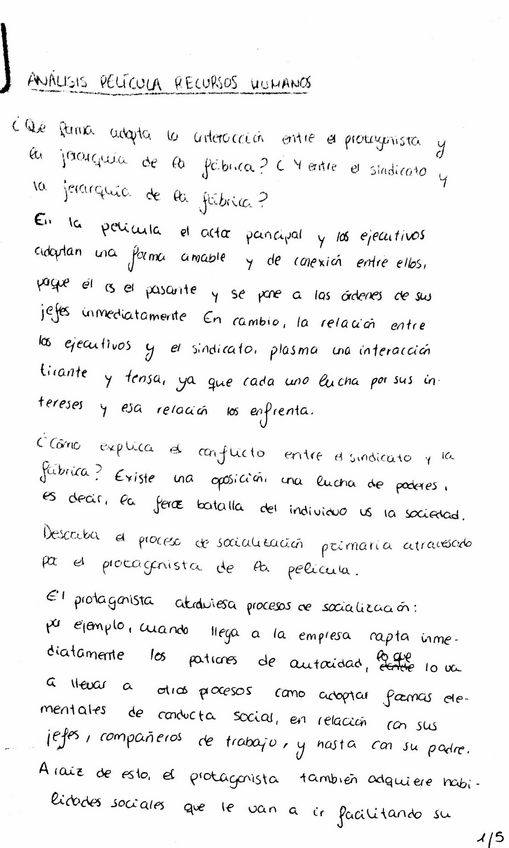 ANÁLISIS PELÍCULA RECURSOS HUMANOS
¿Qué forma adopta la interacción entre el protagonista y
la jerarquía de la fábrica? ¿Y entre el sindicato y
la jerarquía de la fábrica?
En la película el actor principal y los ejecutivos
adoptan una forma amable y de conexión entre ellos,
porque él es el pasante y se pone a las órdenes de sus
jefes inmediatamente En cambio, la relación entre
los ejecutivos y el sindicato, plasma una interacción
tirante y tensa, ya que cada uno lucha por sus in-
tereses y esa relación los enfrenta.
¿Cómo explica el conflicto entre el sindicato y la
fábrica? Existe una oposición, una lucha de poderes,
es decir, la feroz batalla del individuo vs la sociedad.
Describa el proceso de socialización primaria atravesado
por el protagonista de la película.
El protagonista atraviesa procesos de socialización:
por ejemplo, cuando llega a la empresa capta inme-
diatamente los patrones de autoridad, lo que lo va
a llevar a otros procesos como adoptar formas ele-
mentales de conducta social, en relación con sus
jefes, compañeros de trabajo, y hasta con su padre.
A raíz de esto, el protagonista también adquiere habi-
lidades sociales que le van a ir facilitando su
1/5